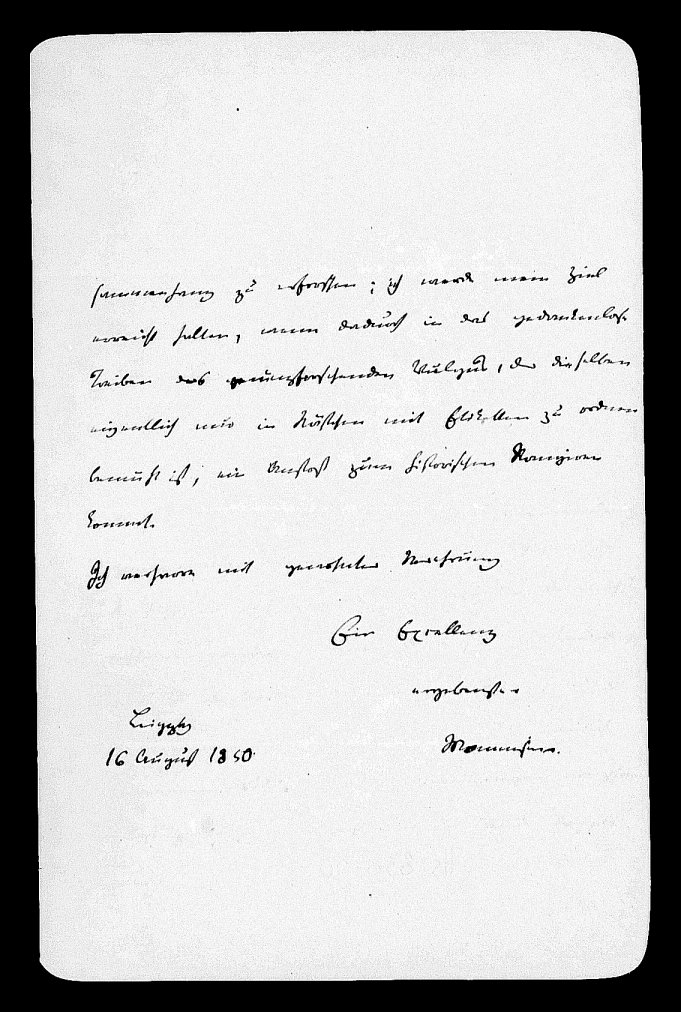 sammenhang zu erforschen; ich werde mein Ziel
erreicht halten, wenn dadurch in das gedankenlose
Treiben des münzforschenden Vulgus, der dieselben
eigentlich nur in Kästchen mit Etiketten zu ordnen
bemüht ist, ein Anstoß zum historischen
kommt.
Ich verharre mit Verehrung
Ew Excellenz
ergebenster
Leipzig
16 August 1850.
Mommsen.